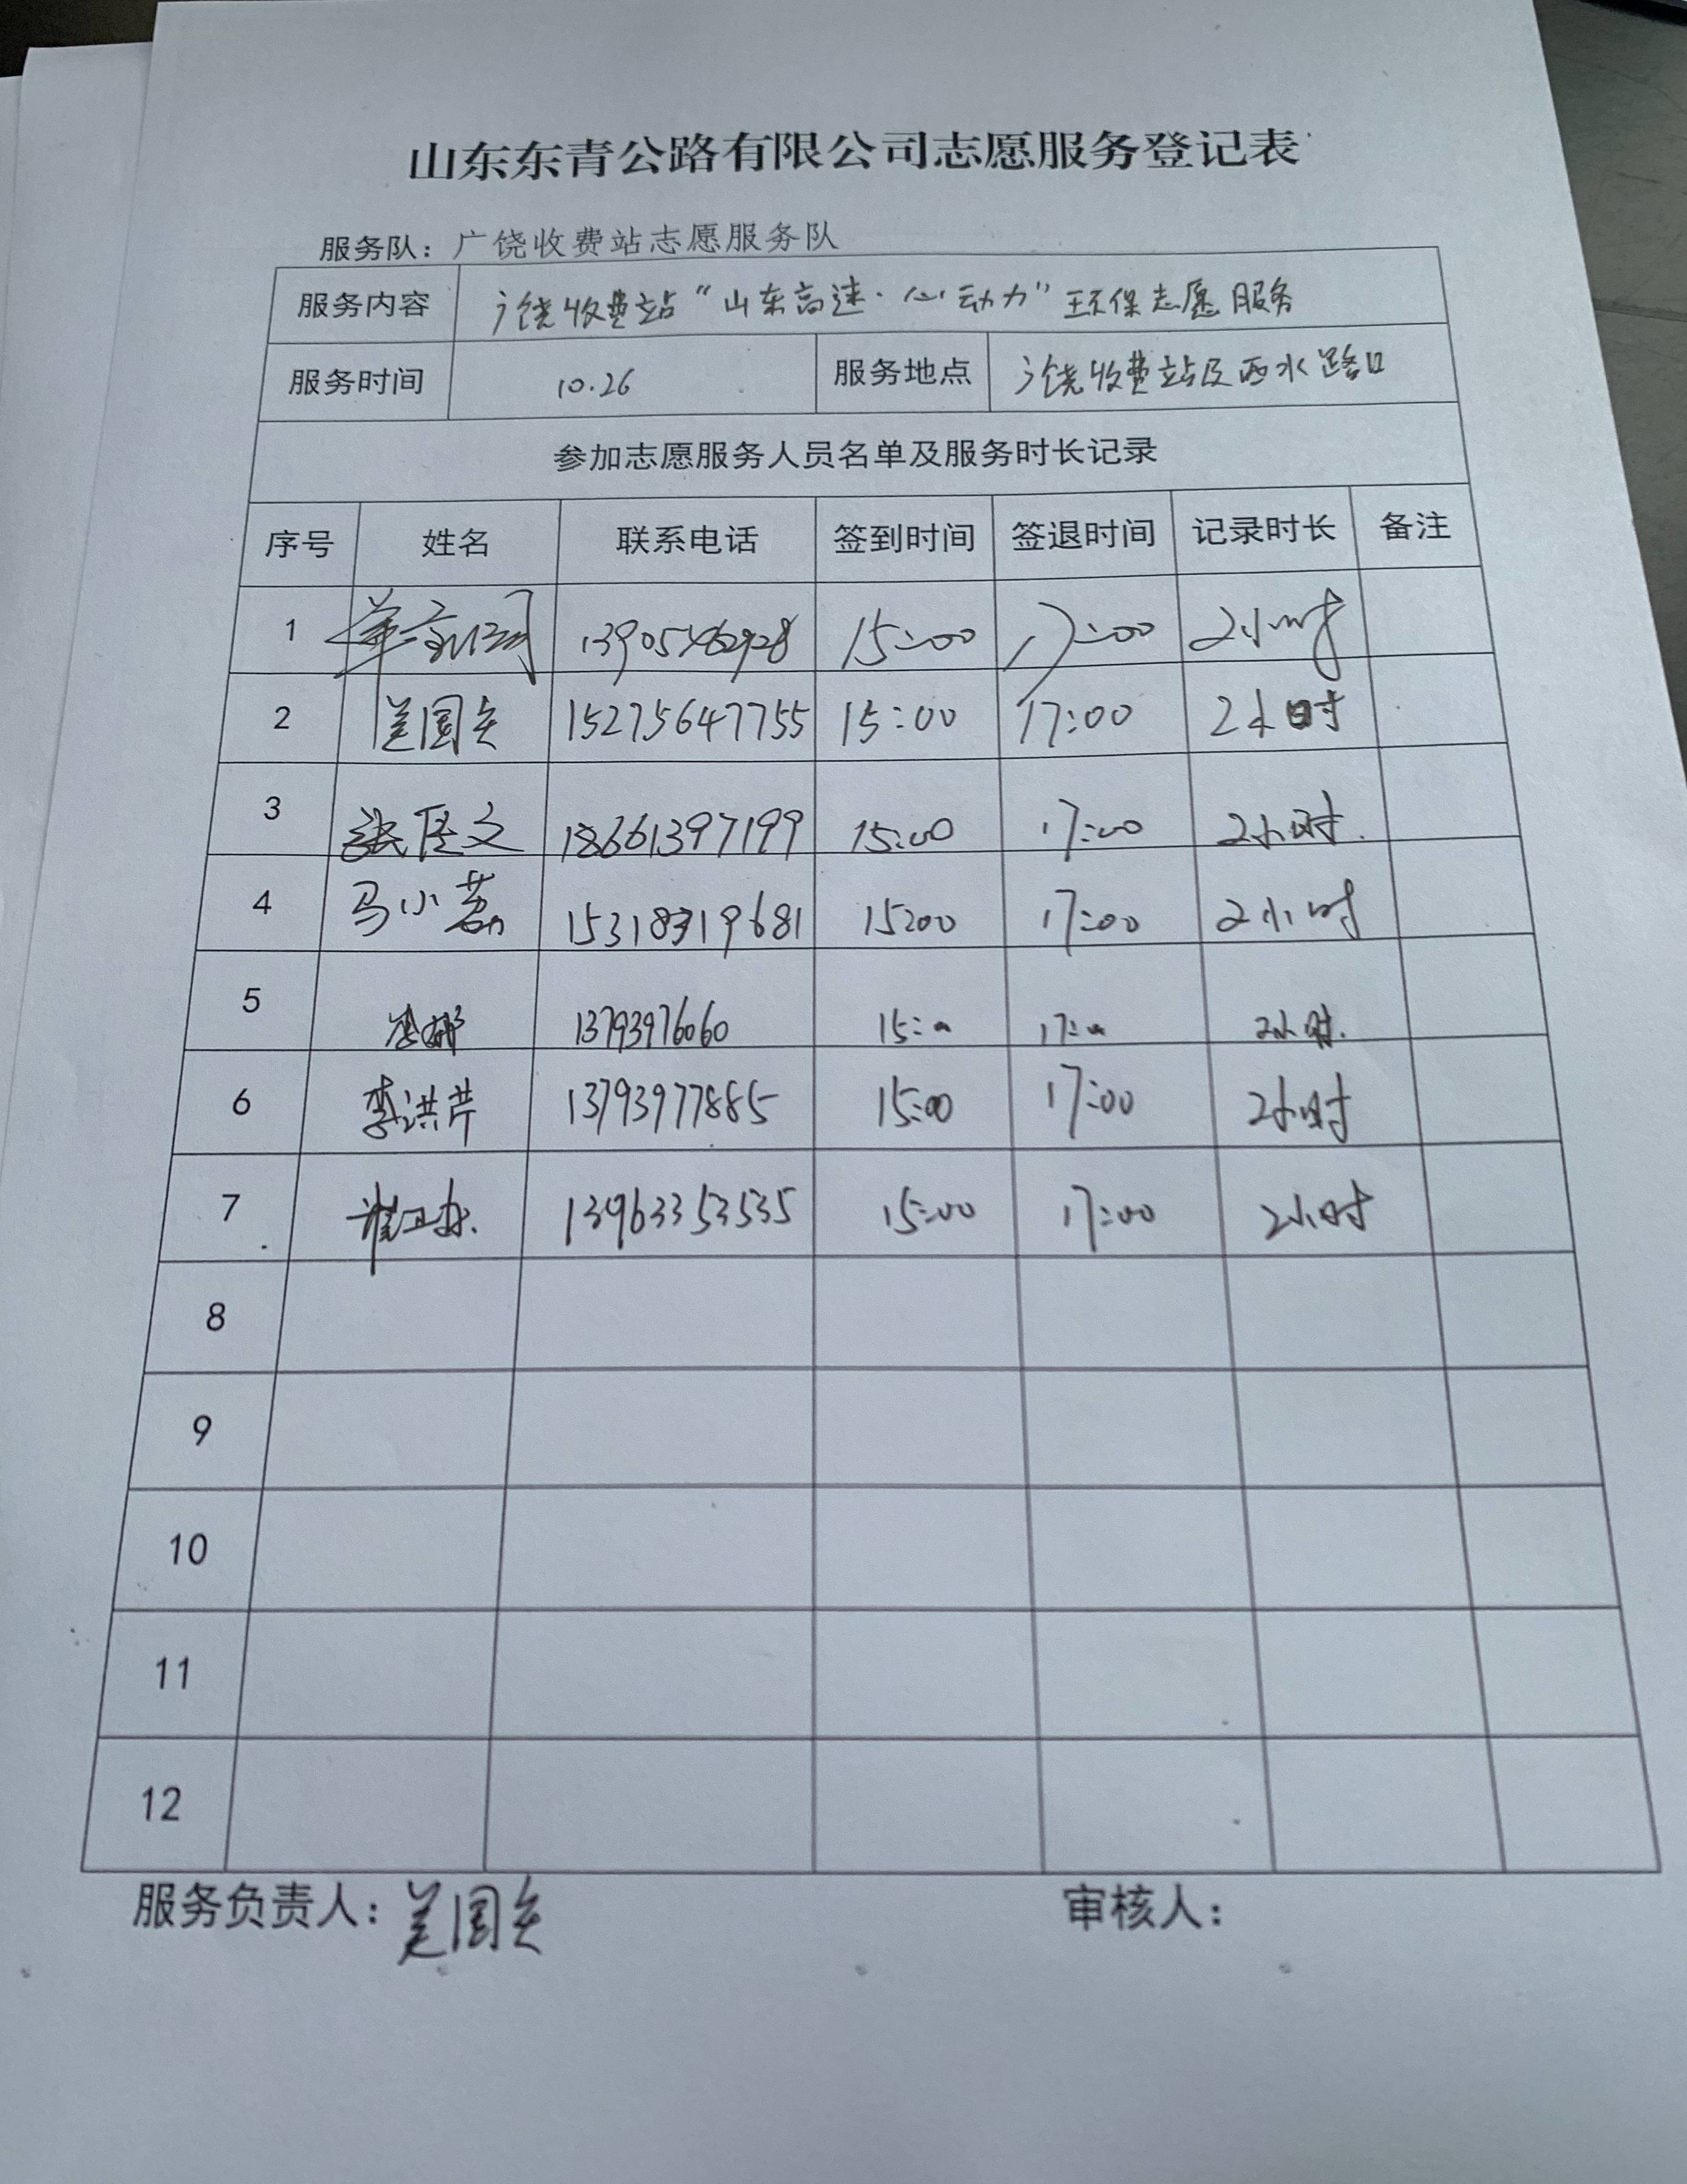 山东东青公路有限公司志愿服务登记表
服务队：广饶收费站志愿服务队
服务内容 广饶收费站“山东高速·心动力”环保志愿服务
服务时间 10.26 服务地点 广饶收费站及西水路口
参加志愿服务人员名单及服务时长记录
序号 姓名 联系电话 签到时间 签退时间 记录时长 备注
1 15:00 17:00 2小时
2 15275647755 15:00 17:00 2小时
3 18661397199 15:00 17:00 2小时.
4 马小荔 15318319681 15:00 17:00 2小时
5 13793976060 15:00 17:00 2小时.
6 李洪芹 13793977885 15:00 17:00 2小时
7 13963353535 15:00 17:00 2小时
8
9
10
11
12
服务负责人： 审核人：